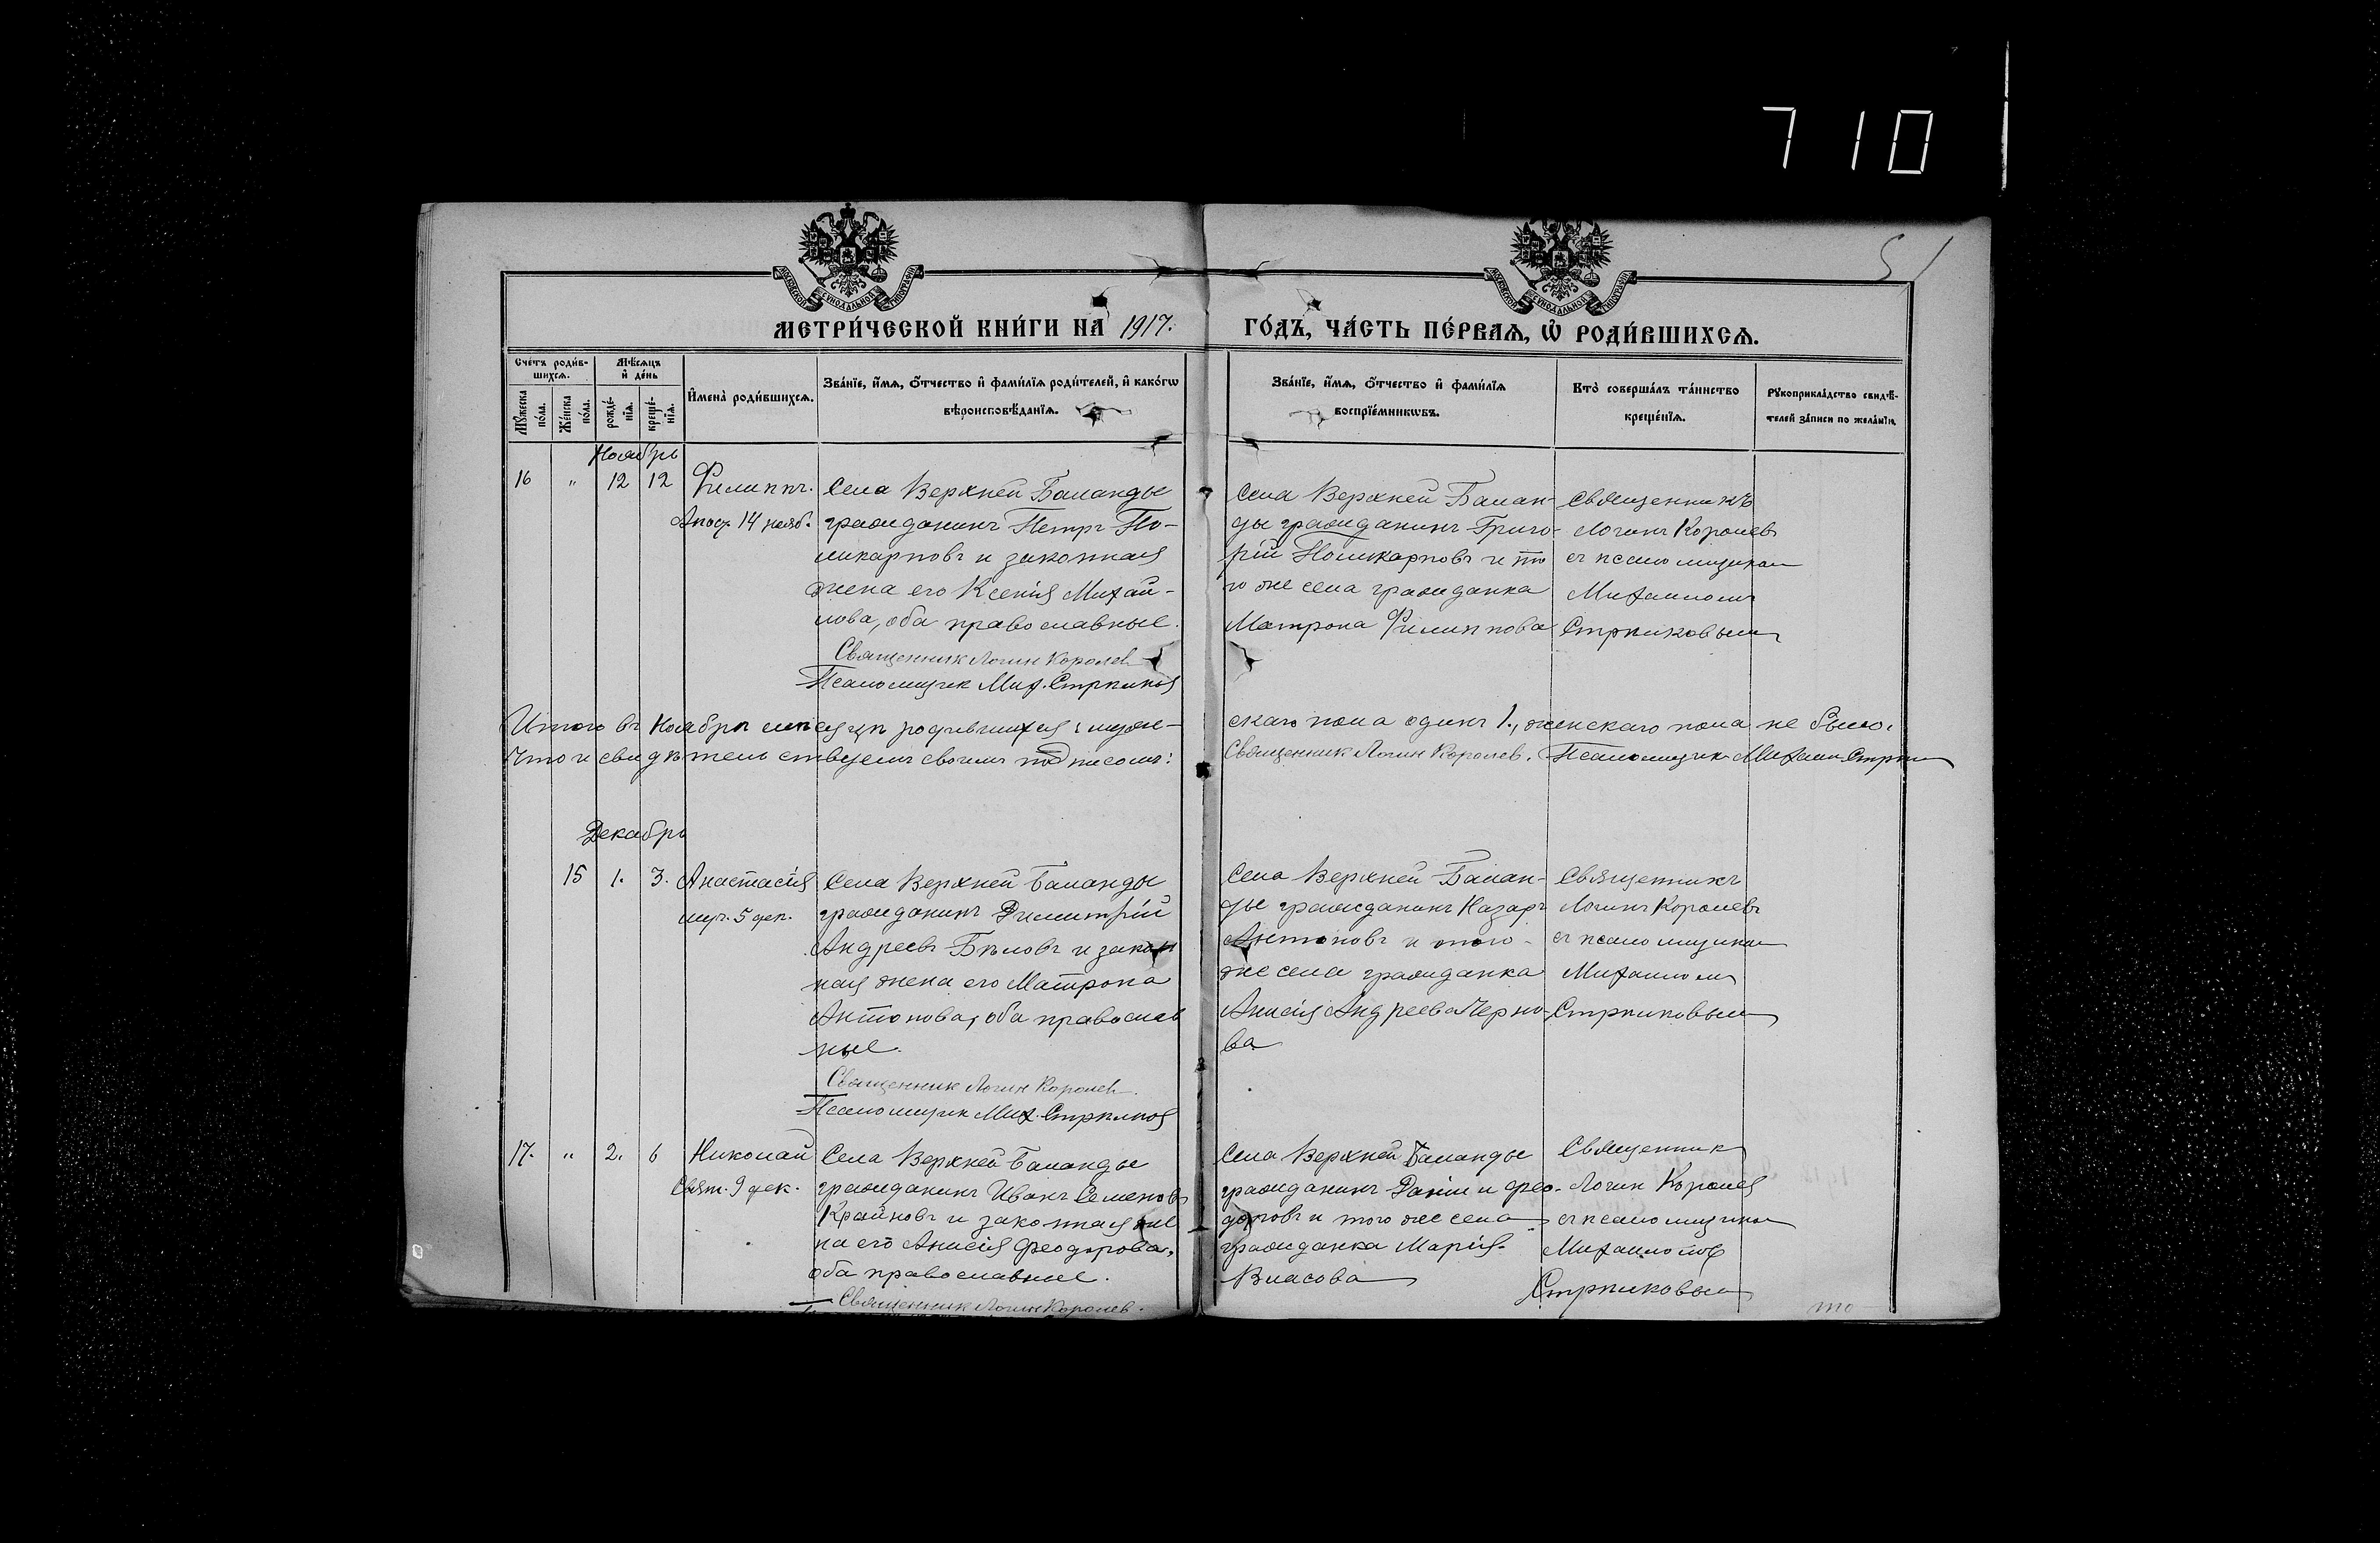 710
51
МОСКОВСКОЙ СѴНОДАЛЬНОЙ ТИПОГРАФІИ
МОСКОВСКОЙ СѴНОДАЛЬНОЙ ТИПОГРАФІИ
МЕТРИ́ЧЕСКОЙ КНИ́ГИ НА 1917.
ГО́ДЪ, ЧА́СТЬ ПЕ́РВАѦ, Ѽ РОДИ́ВШИХСѦ.
Сче́тъ роди́в-
шихсѧ.
Мꙋ́жеска по́ла.
Же́нска по́ла.
Мѣ́сѧцъ
и҆ де́нь
рожде́-
нїѧ.
креще́-
нїѧ.
И҆мена̀ роди́вшихсѧ.
Зва́нїе, и҆́мѧ, ѻ҆́тчество и҆ фами́лїѧ роди́телей, и҆ како́гѡ
вѣроисповѣ́данїѧ.
Зва́нїе, и҆́мѧ, ѻ҆́тчество и҆ фами́лїѧ
воспрїе́мникѡвъ.
Кто̀ соверша́лъ та́инство
креще́нїѧ.
Рꙋкоприкла́дство свидѣ́-
телей за́писи по жела́нїю.
Ноябрь
16 " 12 12 Филиппъ.
Апост. 14 нояб.
Села Верхней Баланды
гражданинъ Петръ По-
ликарповъ и законная
жена его Ксенія Михай-
лова, оба православные.
Священник Логин Королев
Псаломщик Мих. Стрѣлков
Села Верхней Балан-
ды гражданинъ Григо-
рій Поликарповъ и то
го же села гражданка
Матрона Филиппова
Священникъ
Логинъ Королевъ
съ псаломщиком
Михаиломъ
Стрѣлковым
Итого въ Ноябрѣ мѣсяцѣ родившихся: муже-
скаго пола одинъ 1., женскаго пола не было.
Что и свидѣтельствуемъ своимъ подписомъ:
Священник Логин Королев. Псаломщик Михаил Стрѣл
Декабрь
15 1. 3. Анастасія
муч. 5 дек.
Села Верхней Баланды
гражданинъ Димитрій
Андреевъ Бѣловъ и закон
ная жена его Матрона
Антонова, оба православ
ные.
Священник Логин Королев.
Псаломщик Мих. Стрѣлков
Села Верхней Балан-
ды гражданинъ Назаръ
Антоновъ и того-
же села гражданка
Анисія Андреева Черно-
ва
Священникъ
Логинъ Королевъ
съ псаломщиком
Михаилом
Стрѣлковым
17. " 2. 6 Николай
Свят. 9 дек.
Села Верхней Баланды
гражданинъ Иванъ Семенов
Крайновъ и законная же
на его Анисія Феодорова,
оба православные.
Священник Логин Королев.
Села Верхней Баланды
гражданинъ Даніил Фео-
доровъ и того же села
гражданка Марія
Власова
Священник
Логин Королев
съ псаломщиком
Михаилом
Стрѣлковым
то